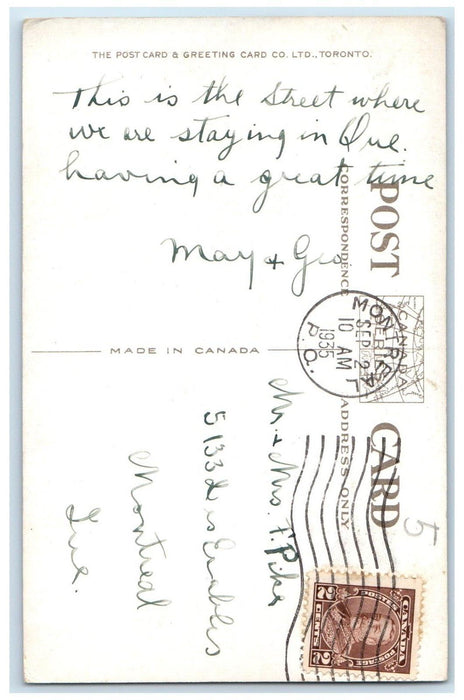 THE POST CARD & GREETING CARD CO. LTD., TORONTO.
This is the Street where
we are staying in Que.
having a great time
May & Geo
MADE IN CANADA
POST CARD
CORRESPONDENCE
ADDRESS ONLY
CANADA
SERIES
MONTREAL
SEP 2
10 AM
1935
P.Q.
Mr. & Mrs. F. Pike
5133 des Erables
Montreal
Que.
5
CANADA
POSTAGE
POSTES
2 CENTS 2